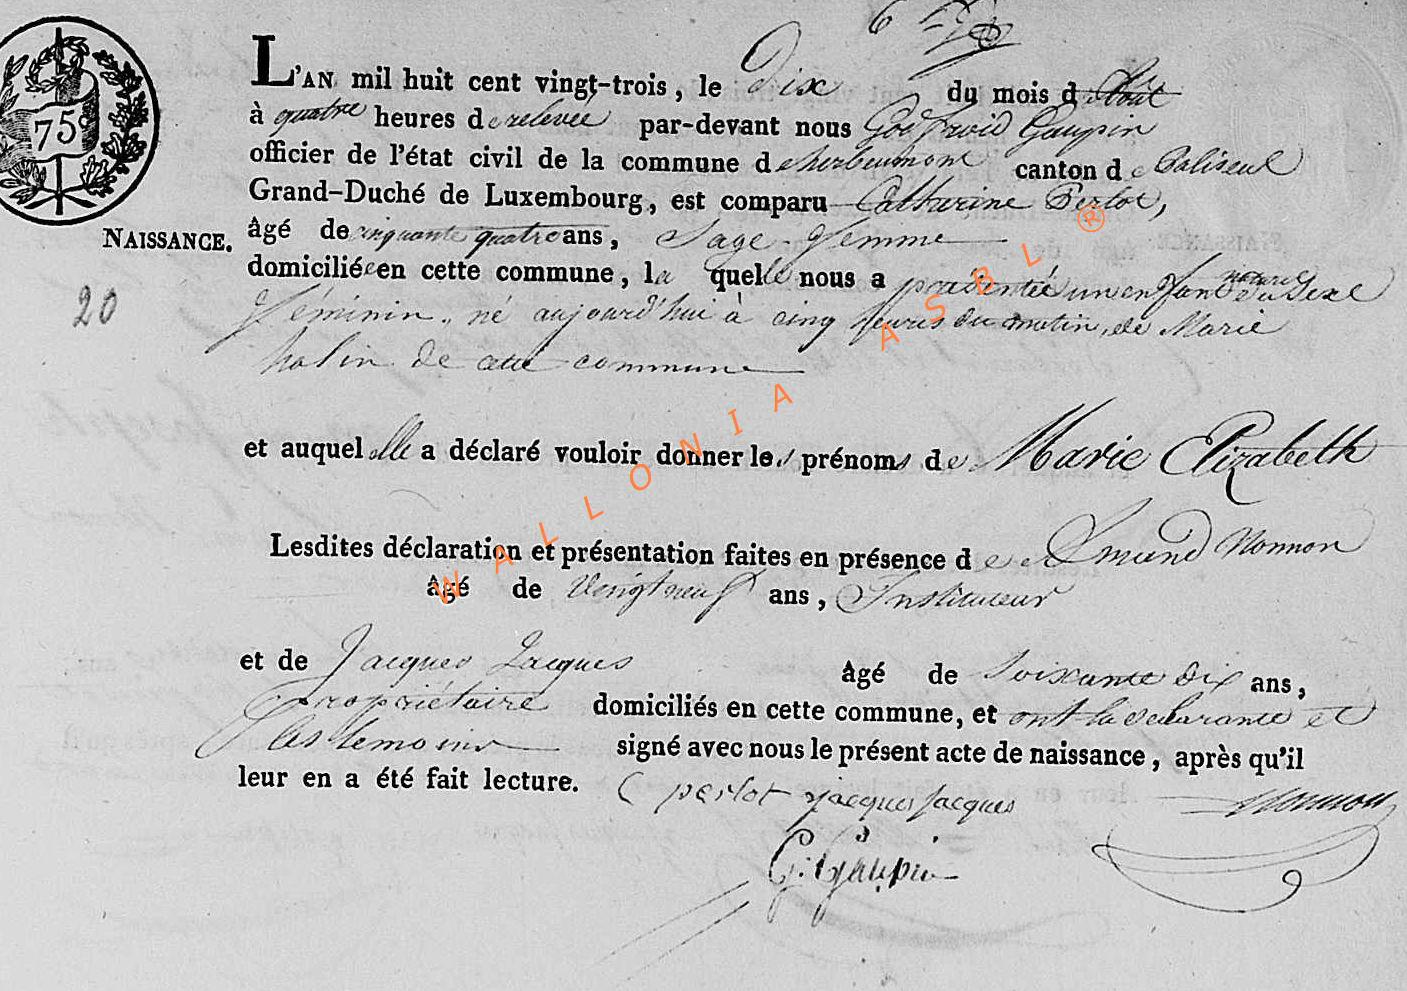 75c
L'AN mil huit cent vingt-trois, le Dix du mois d'Août
à quatre heures de relevée par-devant nous Godfroid Gaupin
officier de l'état civil de la commune de herbeumont canton de Paliseul
Grand-Duché de Luxembourg, est comparu Catharine Perlot,
NAISSANCE.
âgé de cinquante quatre ans, Sage Femme
domiciliée en cette commune, la quelle nous a présenté un enfant naturel du Sexe
20
féminin, né aujourd'hui à cinq heures du matin, de Marie
de cette commune
et auquel elle a déclaré vouloir donner les prénoms de Marie Elizabeth
Lesdites déclaration et présentation faites en présence de Nonnon
âgé de vingt neuf ans, Instituteur
et de Jacques Jacques âgé de Soixante dix ans,
propriétaire domiciliés en cette commune, et ont la déclarante et
les témoins signé avec nous le présent acte de naissance, après qu'il
leur en a été fait lecture.
C perlot jacques jacques Nonnon
G: Gaupin
WALLONIA ASBL ®